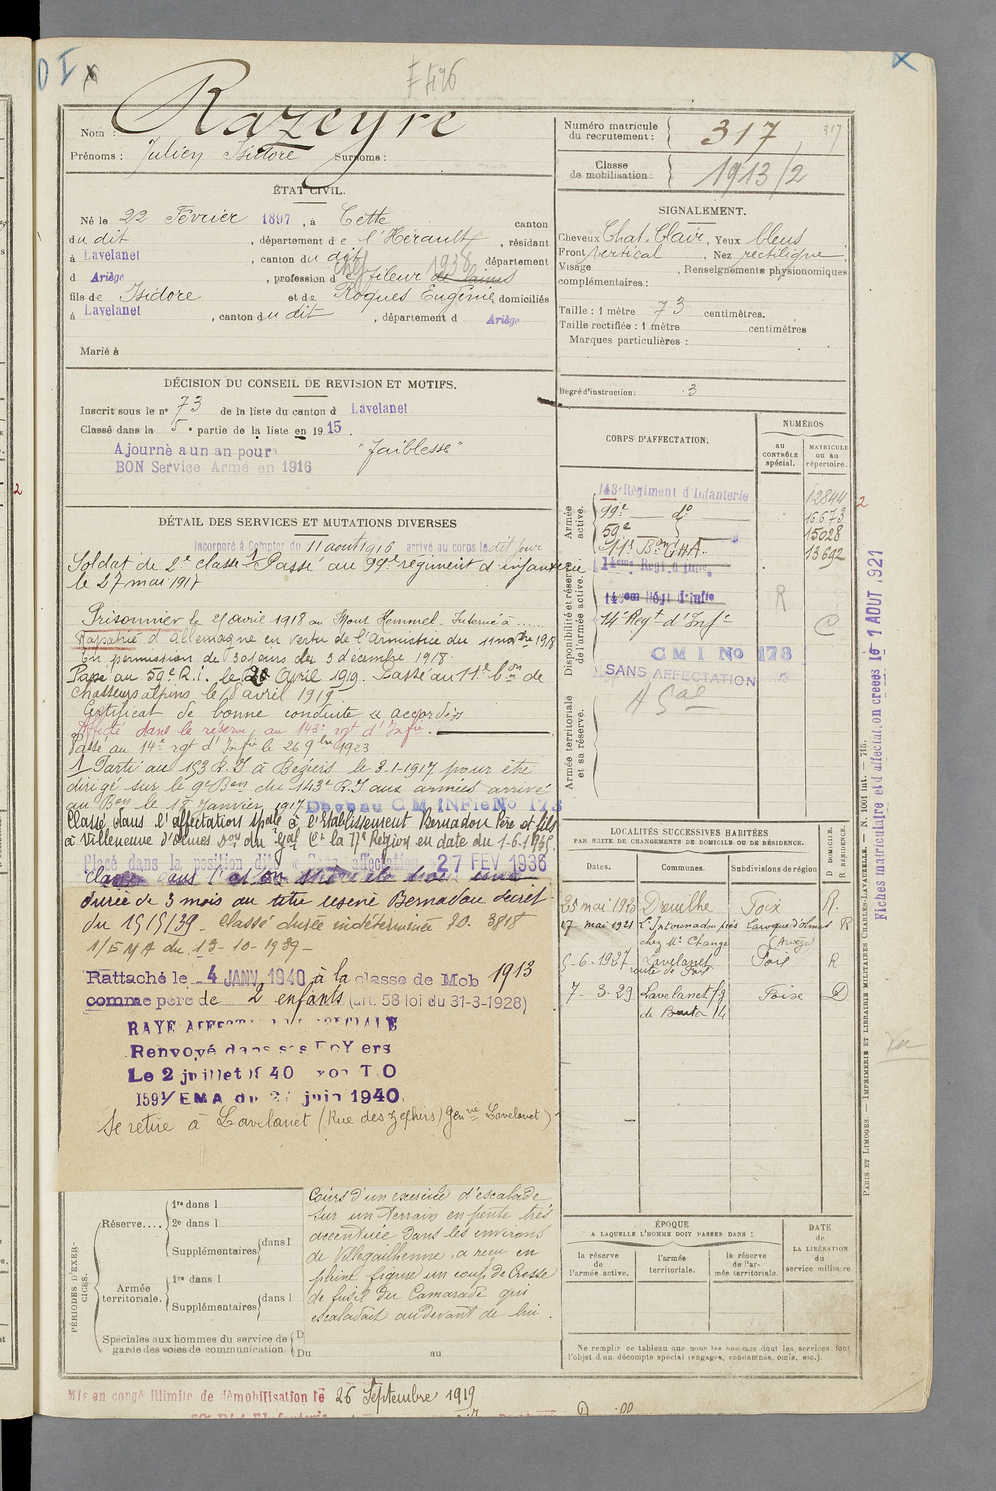 Nom : Razeyre
Prénoms : Julien Isidore Surnoms :
ÉTAT CIVIL.
Né le 22 Février 1897, à Cette canton
du dit, département de l'Hérault, résidant
à Lavelanet, canton du dit département
d Ariège, profession d chef fileur de laines 1938
fils de Isidore et de Roques Eugénie, domiciliés
à Lavelanet, canton du dit, département d Ariège
Marié à
DÉCISION DU CONSEIL DE REVISION ET MOTIFS.
Inscrit sous le n° 73 de la liste du canton d Lavelanet
Classé dans la 5e partie de la liste en 1915.
Ajourné a un an pour "faiblesse"
BON Service Armé en 1916
DÉTAIL DES SERVICES ET MUTATIONS DIVERSES
Incorporé à Compter du 11 aout 1916 arrivé au corps le dit jour
Soldat de 2e classe. Passé au 99e régiment d'infanterie
le 27 mai 1917
Prisonnier le 25 avril 1918 au Mont Hemmel. Interné à ......
Rapatrié d'Allemagne en vertu de l'Armistice du 11 novbre 1918
En permission de 30 jours du 3 décembre 1918.
Passé au 59e R.I. le 20 Avril 1919. Passé au 11e bon de
chasseurs alpins le 8 avril 1919
Certificat de bonne conduite "accordé"
Affecté dans la réserve au 143e rgt d'Infie.
Passé au 14e rgt d'Infie le 26 9bre 1923
1 Parti au 153 R.I à Beziers le 3-1-1917 pour être
dirigé sur le 9e Bon du 143e R.I aux armées arrivé
au Bon le 18 Janvier 1917 Devenu C M INFie No 173
Classé dans l'affectation spale à l'Etablissement Bernadou Père et fils
à Villeneuve d'Olmes Don du Gal Ct la 17e Région en date du 1-6-1935.
Placé dans la position dite « Sans affectation 27 FEV 1936
durée de 3 mois au titre reservé Bernadou decret
du 15/5/39 - Classé durée indéterminée D. 3818
1/E M A du 13-10-1939 -
Rattaché le 4 JANV 1940 à la classe de Mob 1913
comme père de 2 enfants (art. 58 loi du 31-3-1928)
RAYE AFFECTATION SPECIALE
Renvoyé dans ses FoYers
Le 2 juillet 1940 T O
1591/EMA du juin 1940
Se retire à Lavelanet (Rue des Zephirs) Gen rie Lavelanet)
PÉRIODES D'EXERCICES.
Réserve.... 1re dans l
2e dans l
Supplémentaires dans l
Armée territoriale. 1re dans l
Supplémentaires dans l
Spéciales aux hommes du service de garde des voies de communication D
Du au
Cours d'un exercice d'escalade
sur un terrain en pente très
accentuée dans les environs
de Villegailhenne, a reçu en
pleine figure un coup de crosse
de fusil du Camarade qui
escaladait au devant de lui.
Mis en congé illimité de démobilisation le 26 Septembre 1919
Numéro matricule du recrutement : 317
317
Classe de mobilisation : 1913/2
SIGNALEMENT.
Cheveux Chat. Clair, Yeux bleus
Front vertical, Nez rectiligne
Visage, Renseignements physionomiques
complémentaires :
Taille : 1 mètre 73 centimètres.
Taille rectifiée : 1 mètre centimètres
Marques particulières :
Degré d'instruction : 3
CORPS D'AFFECTATION.
NUMÉROS
au CONTRÔLE spécial.
MATRICULE ou au répertoire.
Armée active.
143e Régiment d'Infanterie 12844
99e do 15673
59e 15028
11e Bon CHA 13692
Disponibilité et réserve de l'armée active.
14eme Régt d'Infie
14eme Régt d'Infie R
14e Regt d'Infie C
C M I No 173
SANS AFFECTATION
Armée territoriale et sa réserve.
LOCALITÉS SUCCESSIVES HABITÉES
PAR SUITE DE CHANGEMENTS DE DOMICILE OU DE RÉSIDENCE.
Dates. Communes. Subdivisions de région D DOMICILE. R RÉSIDENCE.
25 mai 1923 Dreuilhe Foix R.
17 mai 1921 L'Intounadou près Laroque d'Olmes R
chez Mr Change (Ariège)
5-6-1927 Lavelanet Foix R
route de Foix
7-3-29 Lavelanet Foix D
ÉPOQUE
A LAQUELLE L'HOMME DOIT PASSER DANS :
la réserve de l'armée active.
l'armée territoriale.
la réserve de l'armée territoriale.
DATE de LA LIBÉRATION du service militaire
Ne remplir ce tableau que pour les hommes dont les services font
l'objet d'un décompte spécial (engagés, condamnés, omis, etc.).
Fiches matriculaire et d'affectation créées le 1 AOUT 1921
PARIS ET LIMOGES. — IMPRIMERIE ET LIBRAIRIE MILITAIRES CHARLES-LAVAUZELLE. — N. 1001 int. — 715.